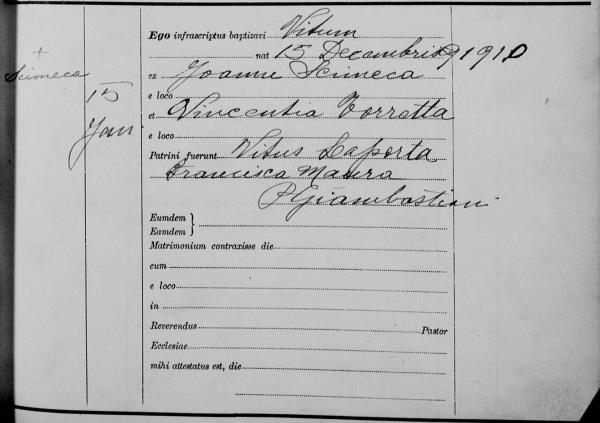 Ego infrascriptus baptizavi Vitum
nat 15 Decembris 1910
+
Scimeca
ex Joanne Scimeca
15
Jan
e loco
et Vincentia Torretta
e loco
Patrini fuerunt Vitus Laporta
Francisca Maura
P Giambastiani
Eumdem }
Eamdem }
Matrimonium contraxisse die
cum
e loco
in
Reverendus Pastor
Ecclesiae
mihi attestatus est, die